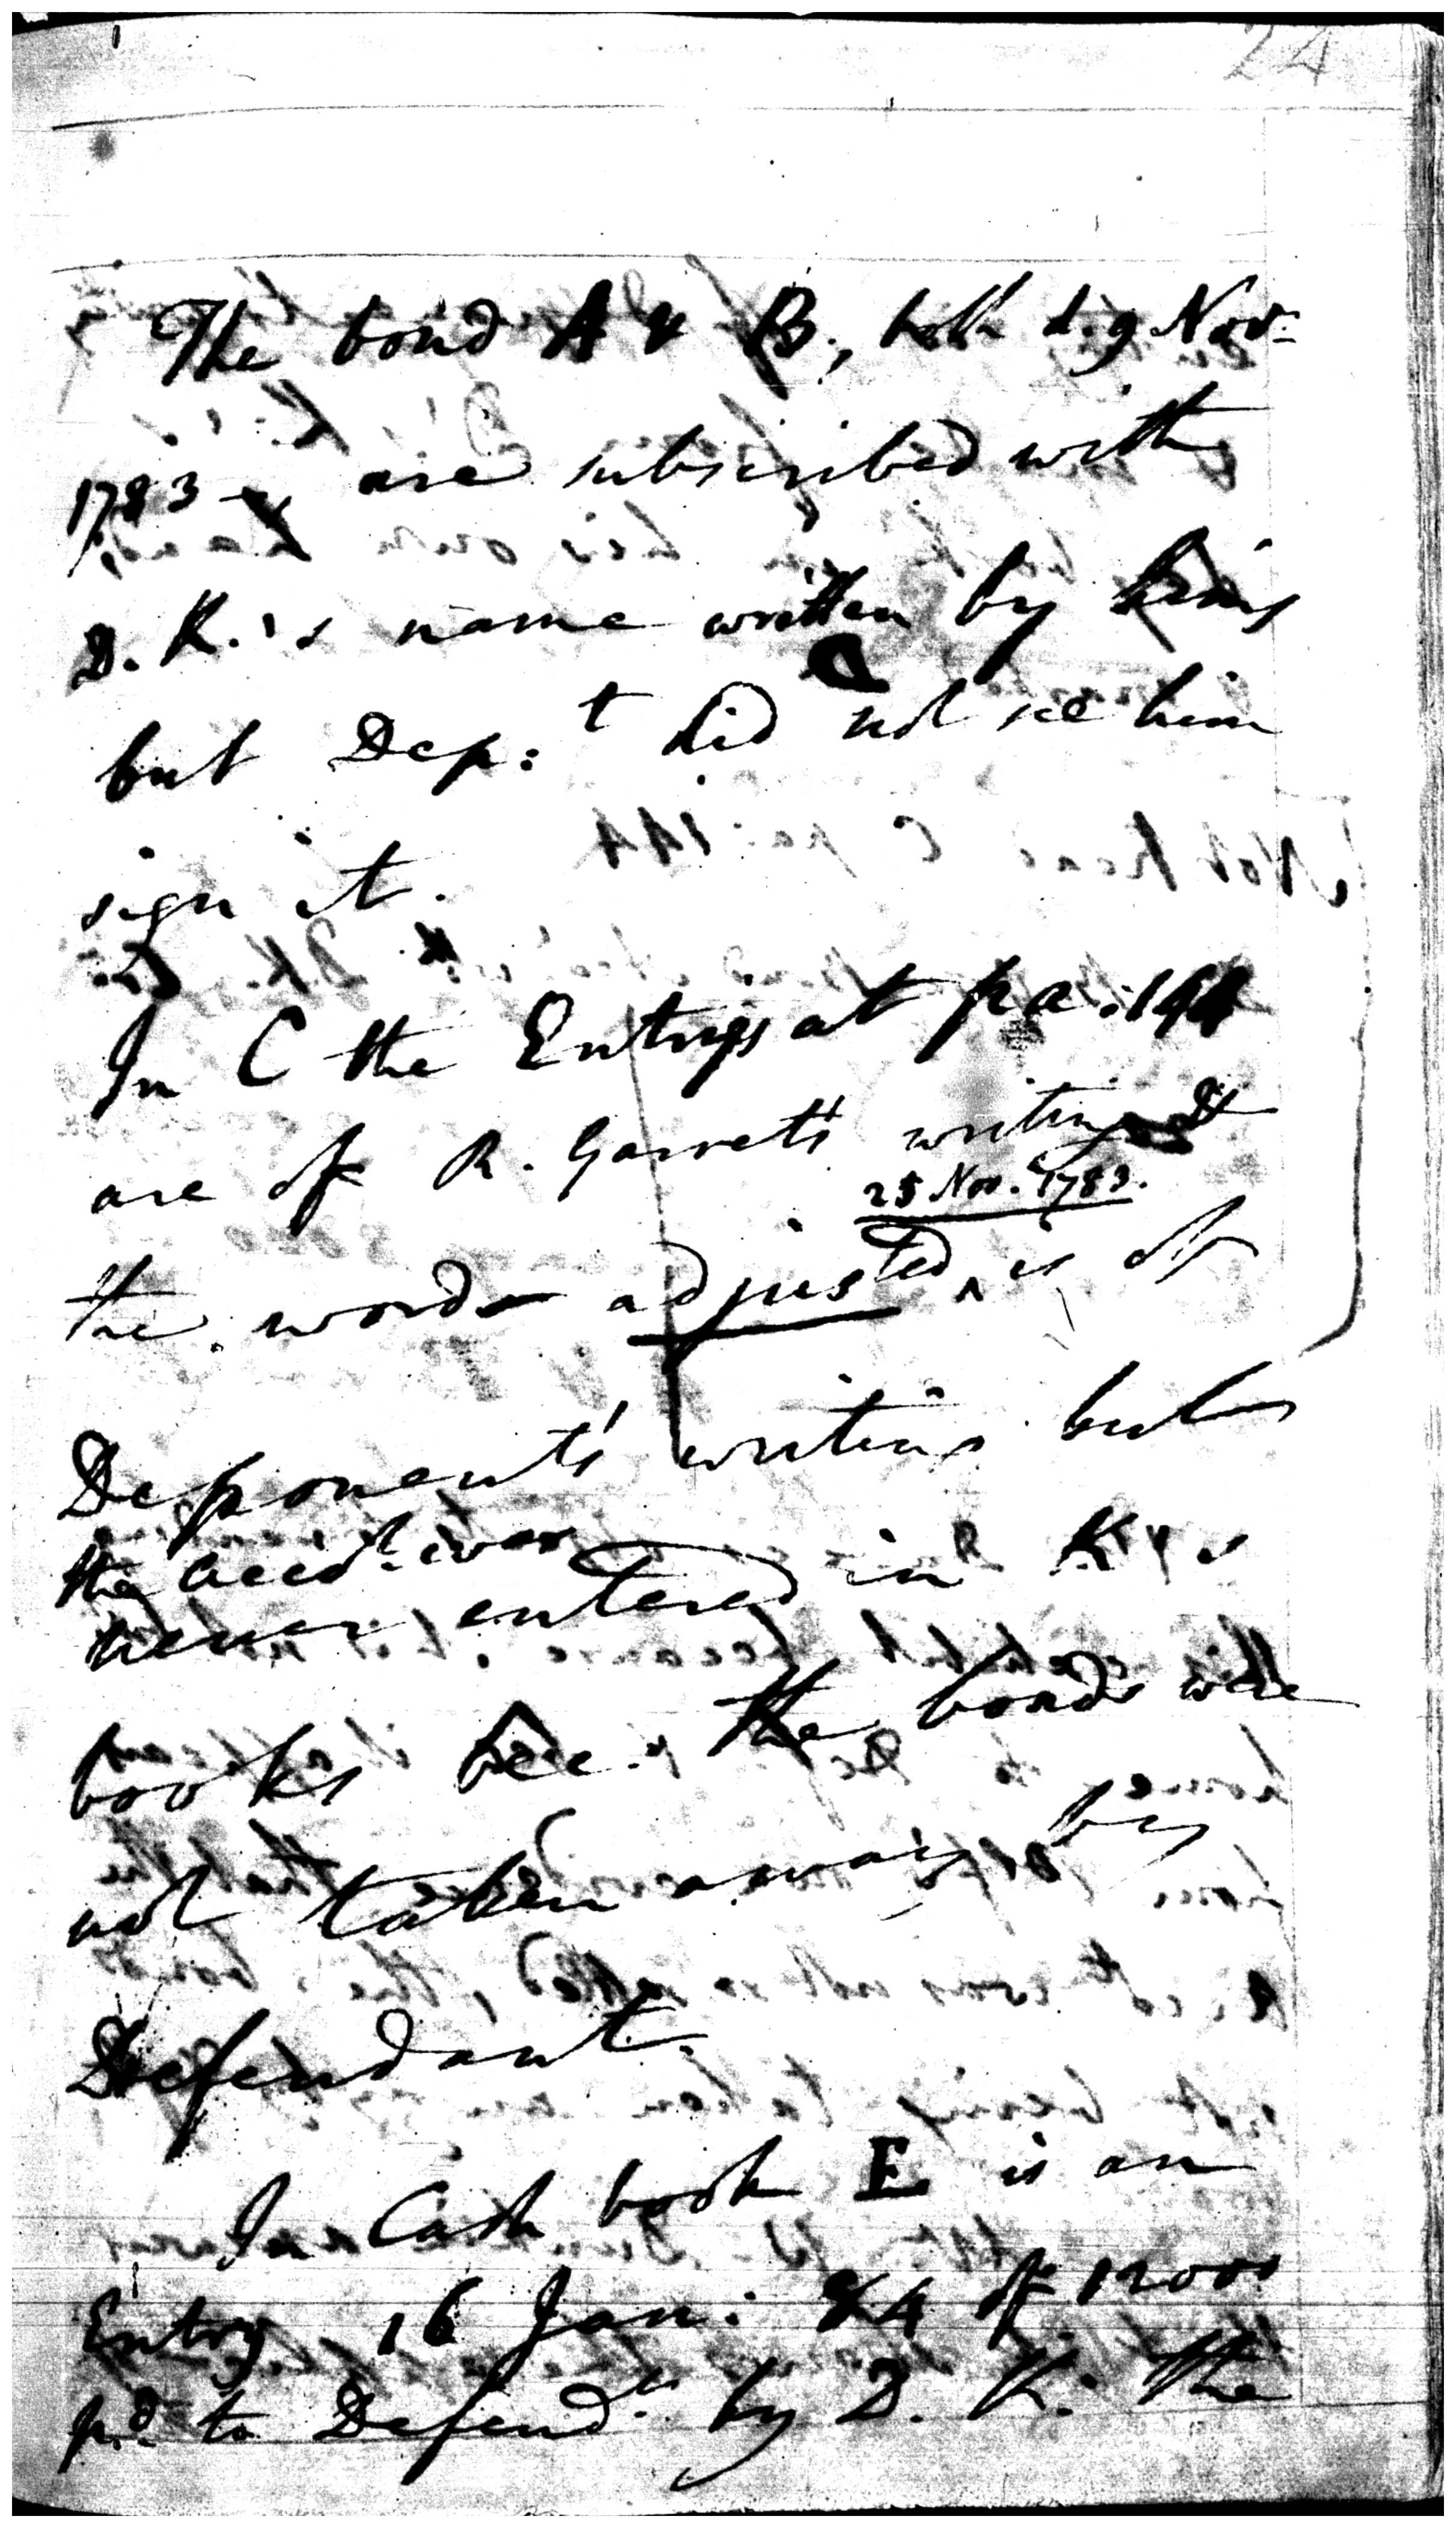 24
The bond A & B, both d. 9 Nov:
1783 are subscribed with
D. K.'s name written by him
but Dep:t did not see him
sign it.
In C the Entrys at pa: 144
are of R. Garrett's writing &
25 Nov. 1783.
the word adjusted ^ is of
Deponent's writing but
the acco.t was
never entered in K's
books bec. the bonds were
not taken away by
Defendant.
In Cash book E is an
Entry 16 Jan: 84 of 12000
p.d to Defend.ts by D. K. the